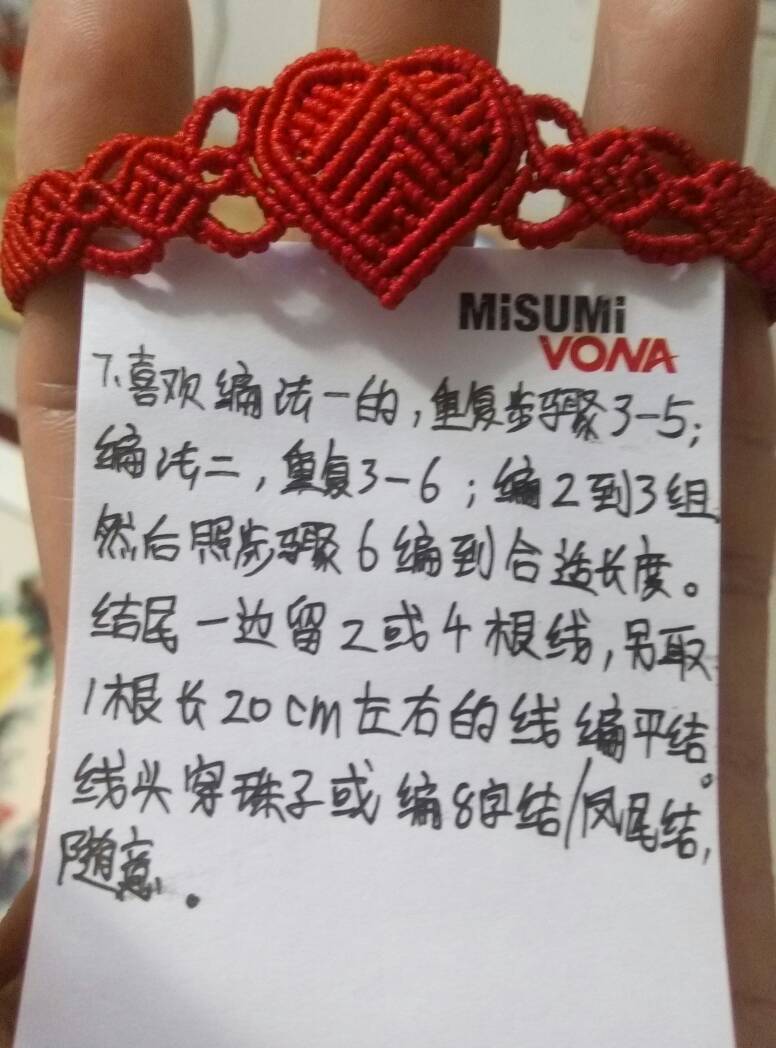 MiSUMi
VONA
7.喜欢编法一的,重复步骤3-5;
编法二,重复3-6;编2到3组
然后照步骤6编到合适长度。
结尾一边留2或4根线,另取
1根长20cm左右的线编平结。
线头穿珠子或编8字结/凤尾结,
随意。